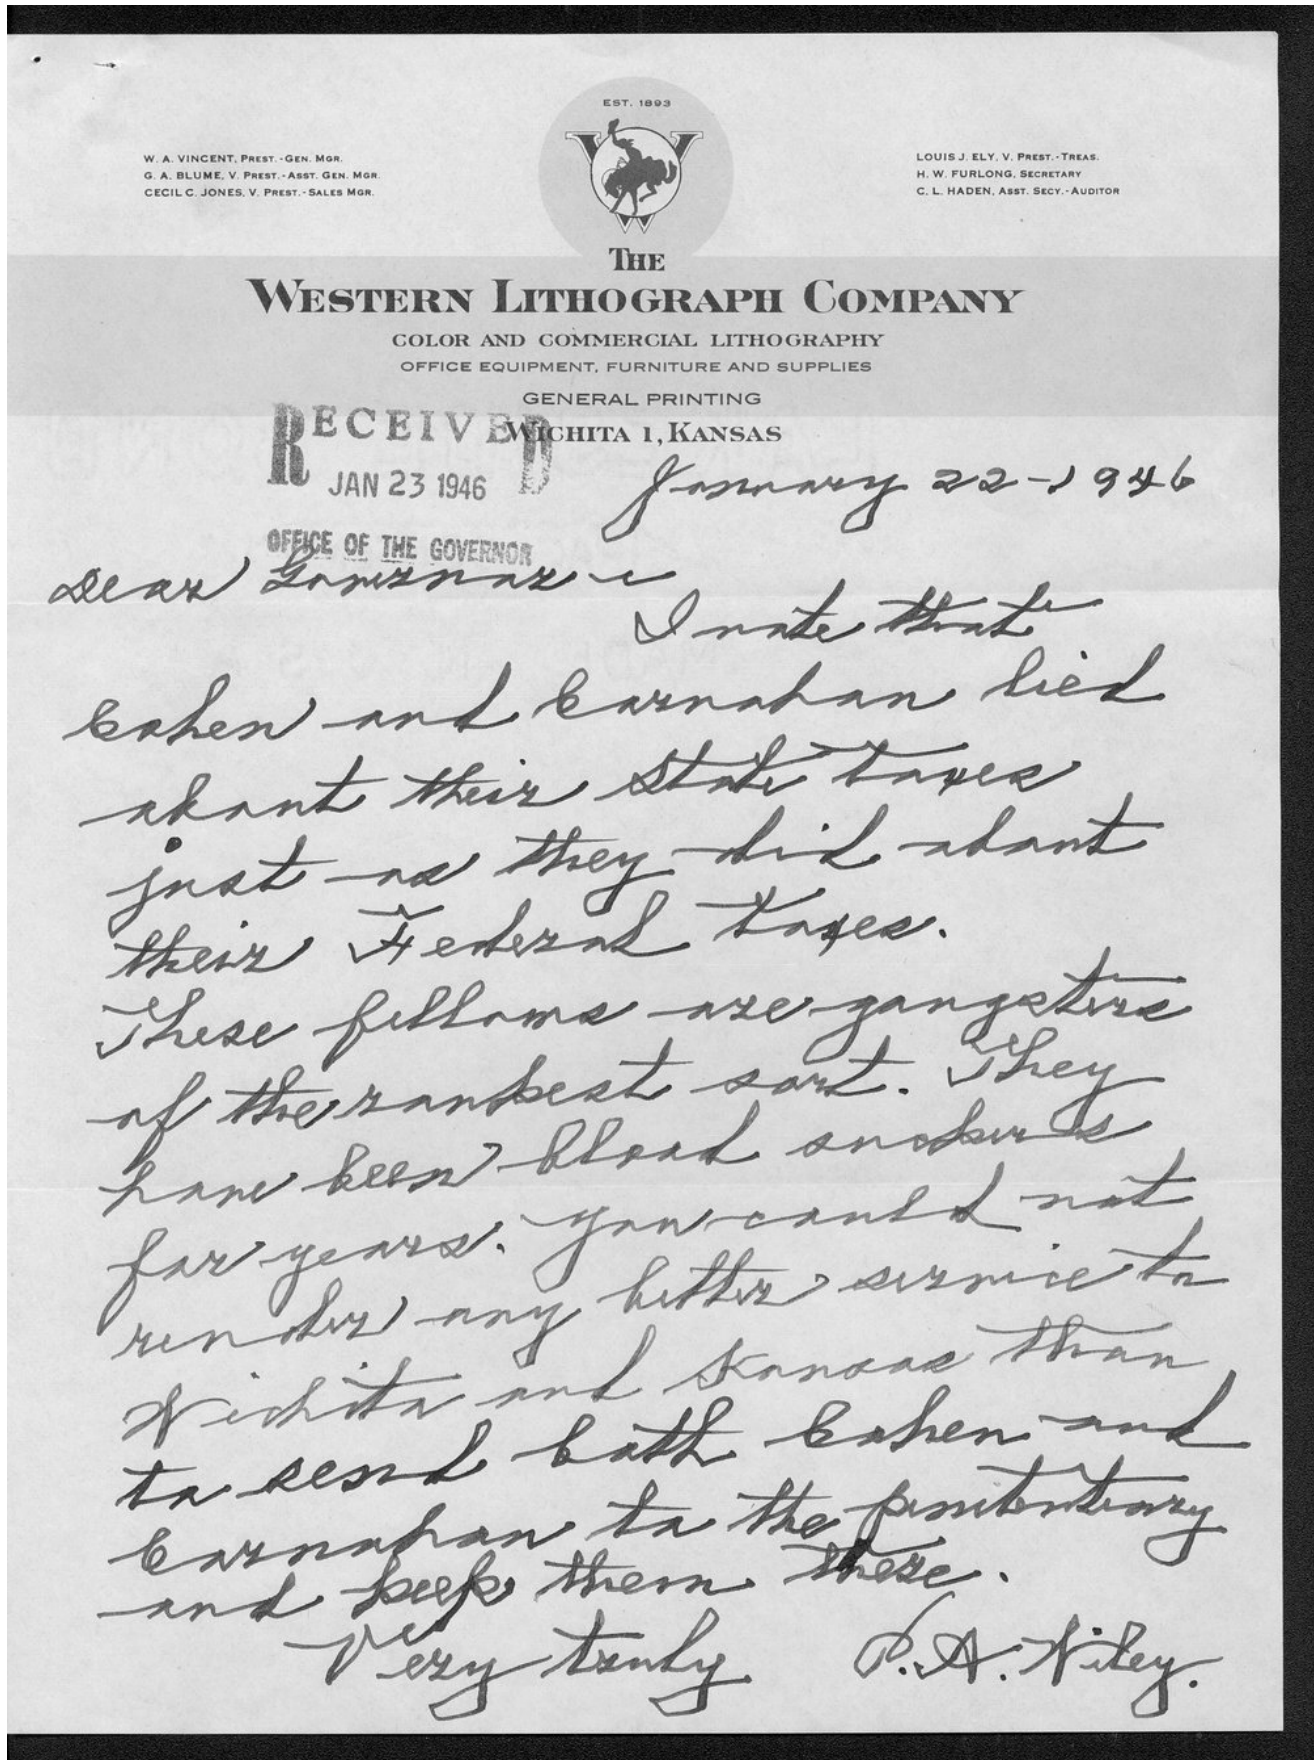 EST. 1893
W
W. A. VINCENT, PREST.-GEN. MGR.
G. A. BLUME, V. PREST.-ASST. GEN. MGR.
CECIL C. JONES, V. PREST.-SALES MGR.
LOUIS J. ELY, V. PREST.-TREAS.
H. W. FURLONG, SECRETARY
C. L. HADEN, ASST. SECY.-AUDITOR
THE
WESTERN LITHOGRAPH COMPANY
COLOR AND COMMERCIAL LITHOGRAPHY
OFFICE EQUIPMENT, FURNITURE AND SUPPLIES
GENERAL PRINTING
WICHITA 1, KANSAS
RECEIVED
JAN 23 1946
OFFICE OF THE GOVERNOR
January 22-1946
Dear Governor -
I note that
Cohen and Carnahan lied
about their State taxes
just as they did about
their Federal taxes.
These fellows are gangsters
of the rankest sort. They
have been blood suckers
for years. You could not
render any better service to
Wichita and Kansas than
to send both Cohen and
Carnahan to the penitentiary
and keep them there.
Very truly P. A. Wiley.